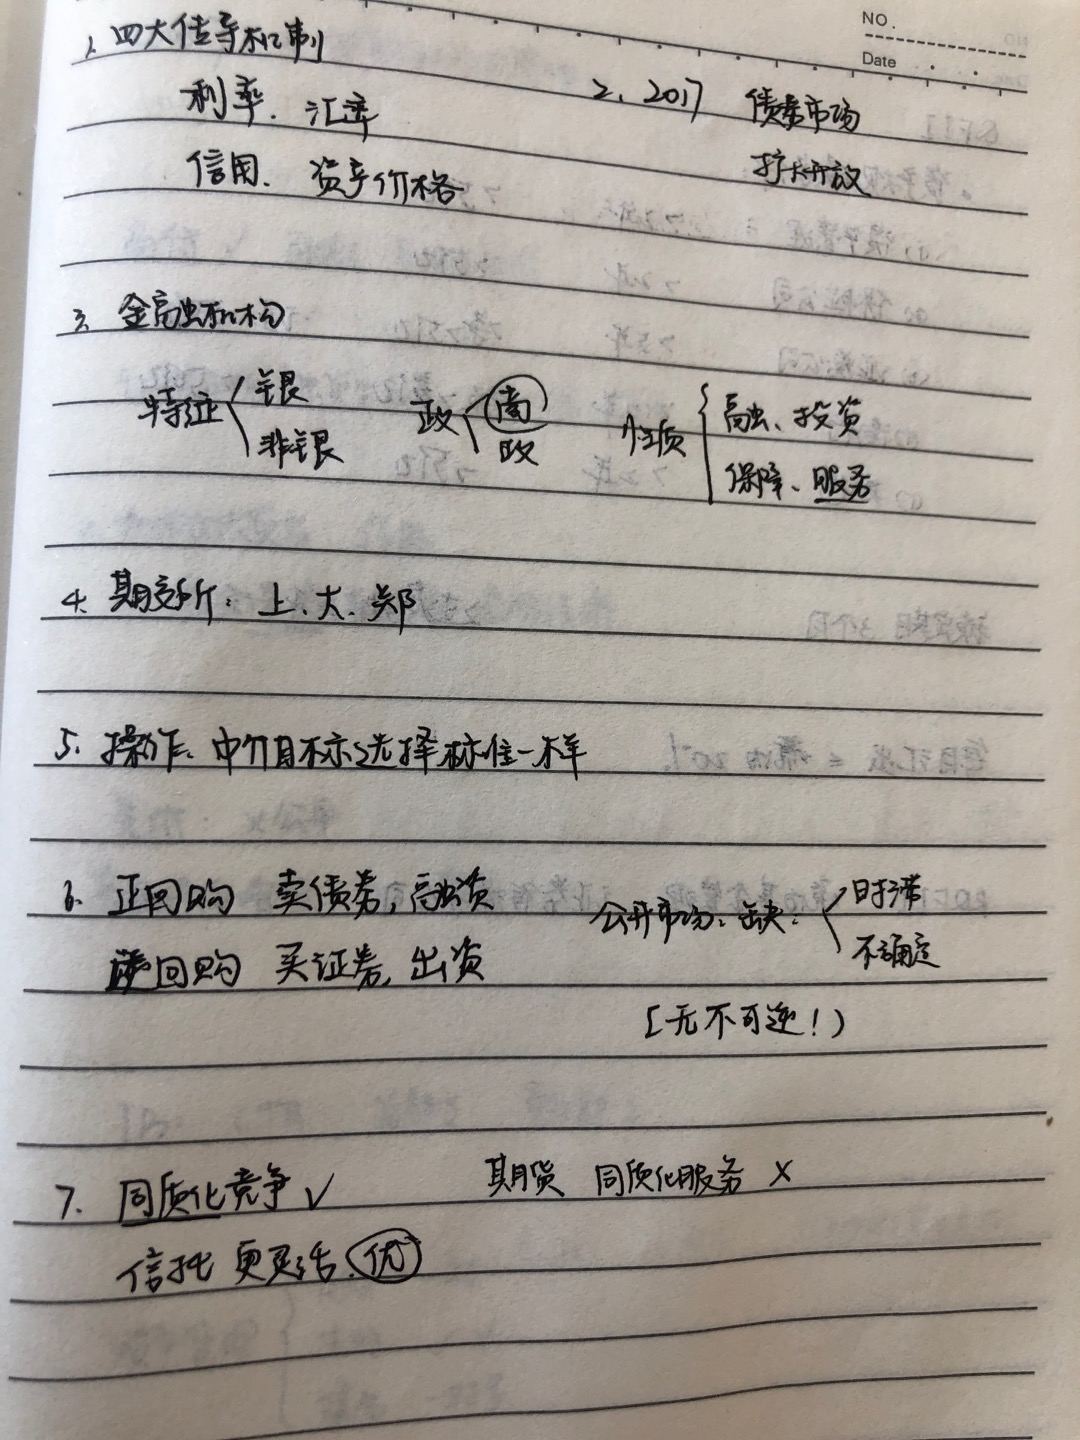 NO.
Date
1、四大传导机制
利率、汇率
信用、资产价格
2、2017 债券市场
扩大开放
3、金融机构
特征 银
非银
政 商
政
性质 融、投资
保障、服务
4、期交所：上、大、郑
5、操作、中介目标选择标准一样
6、正回购 卖债券，融资
逆回购 买证券，出资
公开市场：缺： 时滞
不确定
[无不可逆！)
7、同质化竞争√ 期货 同质化服务 ×
信托 更灵活、优